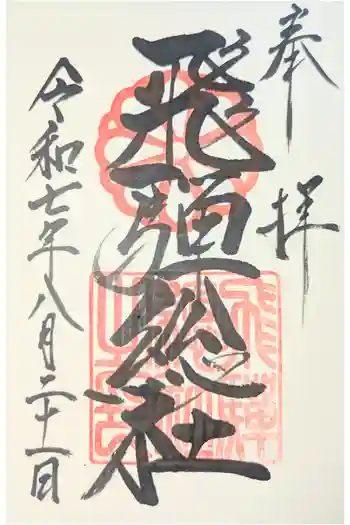 奉拝
飛騨総社
令和七年八月二十一日